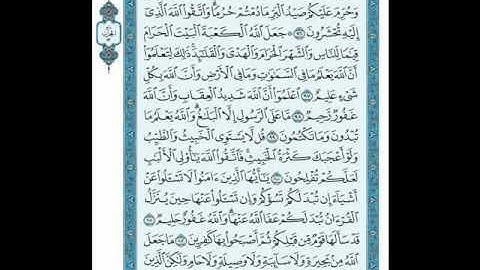 وَحُرِّمَ عَلَيْكُمْ صَيْدُ ٱلْبَرِّ مَا دُمْتُمْ حُرُمًا ۗ وَٱتَّقُوا۟ ٱللَّهَ ٱلَّذِىٓ
إِلَيْهِ تُحْشَرُونَ ۝٩٦ جَعَلَ ٱللَّهُ ٱلْكَعْبَةَ ٱلْبَيْتَ ٱلْحَرَامَ
قِيَٰمًا لِّلنَّاسِ وَٱلشَّهْرَ ٱلْحَرَامَ وَٱلْهَدْىَ وَٱلْقَلَٰٓئِدَ ۚ ذَٰلِكَ لِتَعْلَمُوٓا۟
أَنَّ ٱللَّهَ يَعْلَمُ مَا فِى ٱلسَّمَٰوَٰتِ وَمَا فِى ٱلْأَرْضِ وَأَنَّ ٱللَّهَ بِكُلِّ
شَىْءٍ عَلِيمٌ ۝٩٧ ٱعْلَمُوٓا۟ أَنَّ ٱللَّهَ شَدِيدُ ٱلْعِقَابِ وَأَنَّ ٱللَّهَ
غَفُورٌ رَّحِيمٌ ۝٩٨ مَّا عَلَى ٱلرَّسُولِ إِلَّا ٱلْبَلَٰغُ ۗ وَٱللَّهُ يَعْلَمُ مَا
تُبْدُونَ وَمَا تَكْتُمُونَ ۝٩٩ قُل لَّا يَسْتَوِى ٱلْخَبِيثُ وَٱلطَّيِّبُ
وَلَوْ أَعْجَبَكَ كَثْرَةُ ٱلْخَبِيثِ ۚ فَٱتَّقُوا۟ ٱللَّهَ يَٰٓأُو۟لِى ٱلْأَلْبَٰبِ
لَعَلَّكُمْ تُفْلِحُونَ ۝١٠٠ يَٰٓأَيُّهَا ٱلَّذِينَ ءَامَنُوا۟ لَا تَسْـَٔلُوا۟ عَنْ
أَشْيَآءَ إِن تُبْدَ لَكُمْ تَسُؤْكُمْ وَإِن تَسْـَٔلُوا۟ عَنْهَا حِينَ يُنَزَّلُ
ٱلْقُرْءَانُ تُبْدَ لَكُمْ عَفَا ٱللَّهُ عَنْهَا ۗ وَٱللَّهُ غَفُورٌ حَلِيمٌ ۝١٠١
قَدْ سَأَلَهَا قَوْمٌ مِّن قَبْلِكُمْ ثُمَّ أَصْبَحُوا۟ بِهَا كَٰفِرِينَ ۝١٠٢ مَا جَعَلَ
ٱللَّهُ مِنۢ بَحِيرَةٍ وَلَا سَآئِبَةٍ وَلَا وَصِيلَةٍ وَلَا حَامٍ ۙ وَلَٰكِنَّ ٱلَّذِينَ